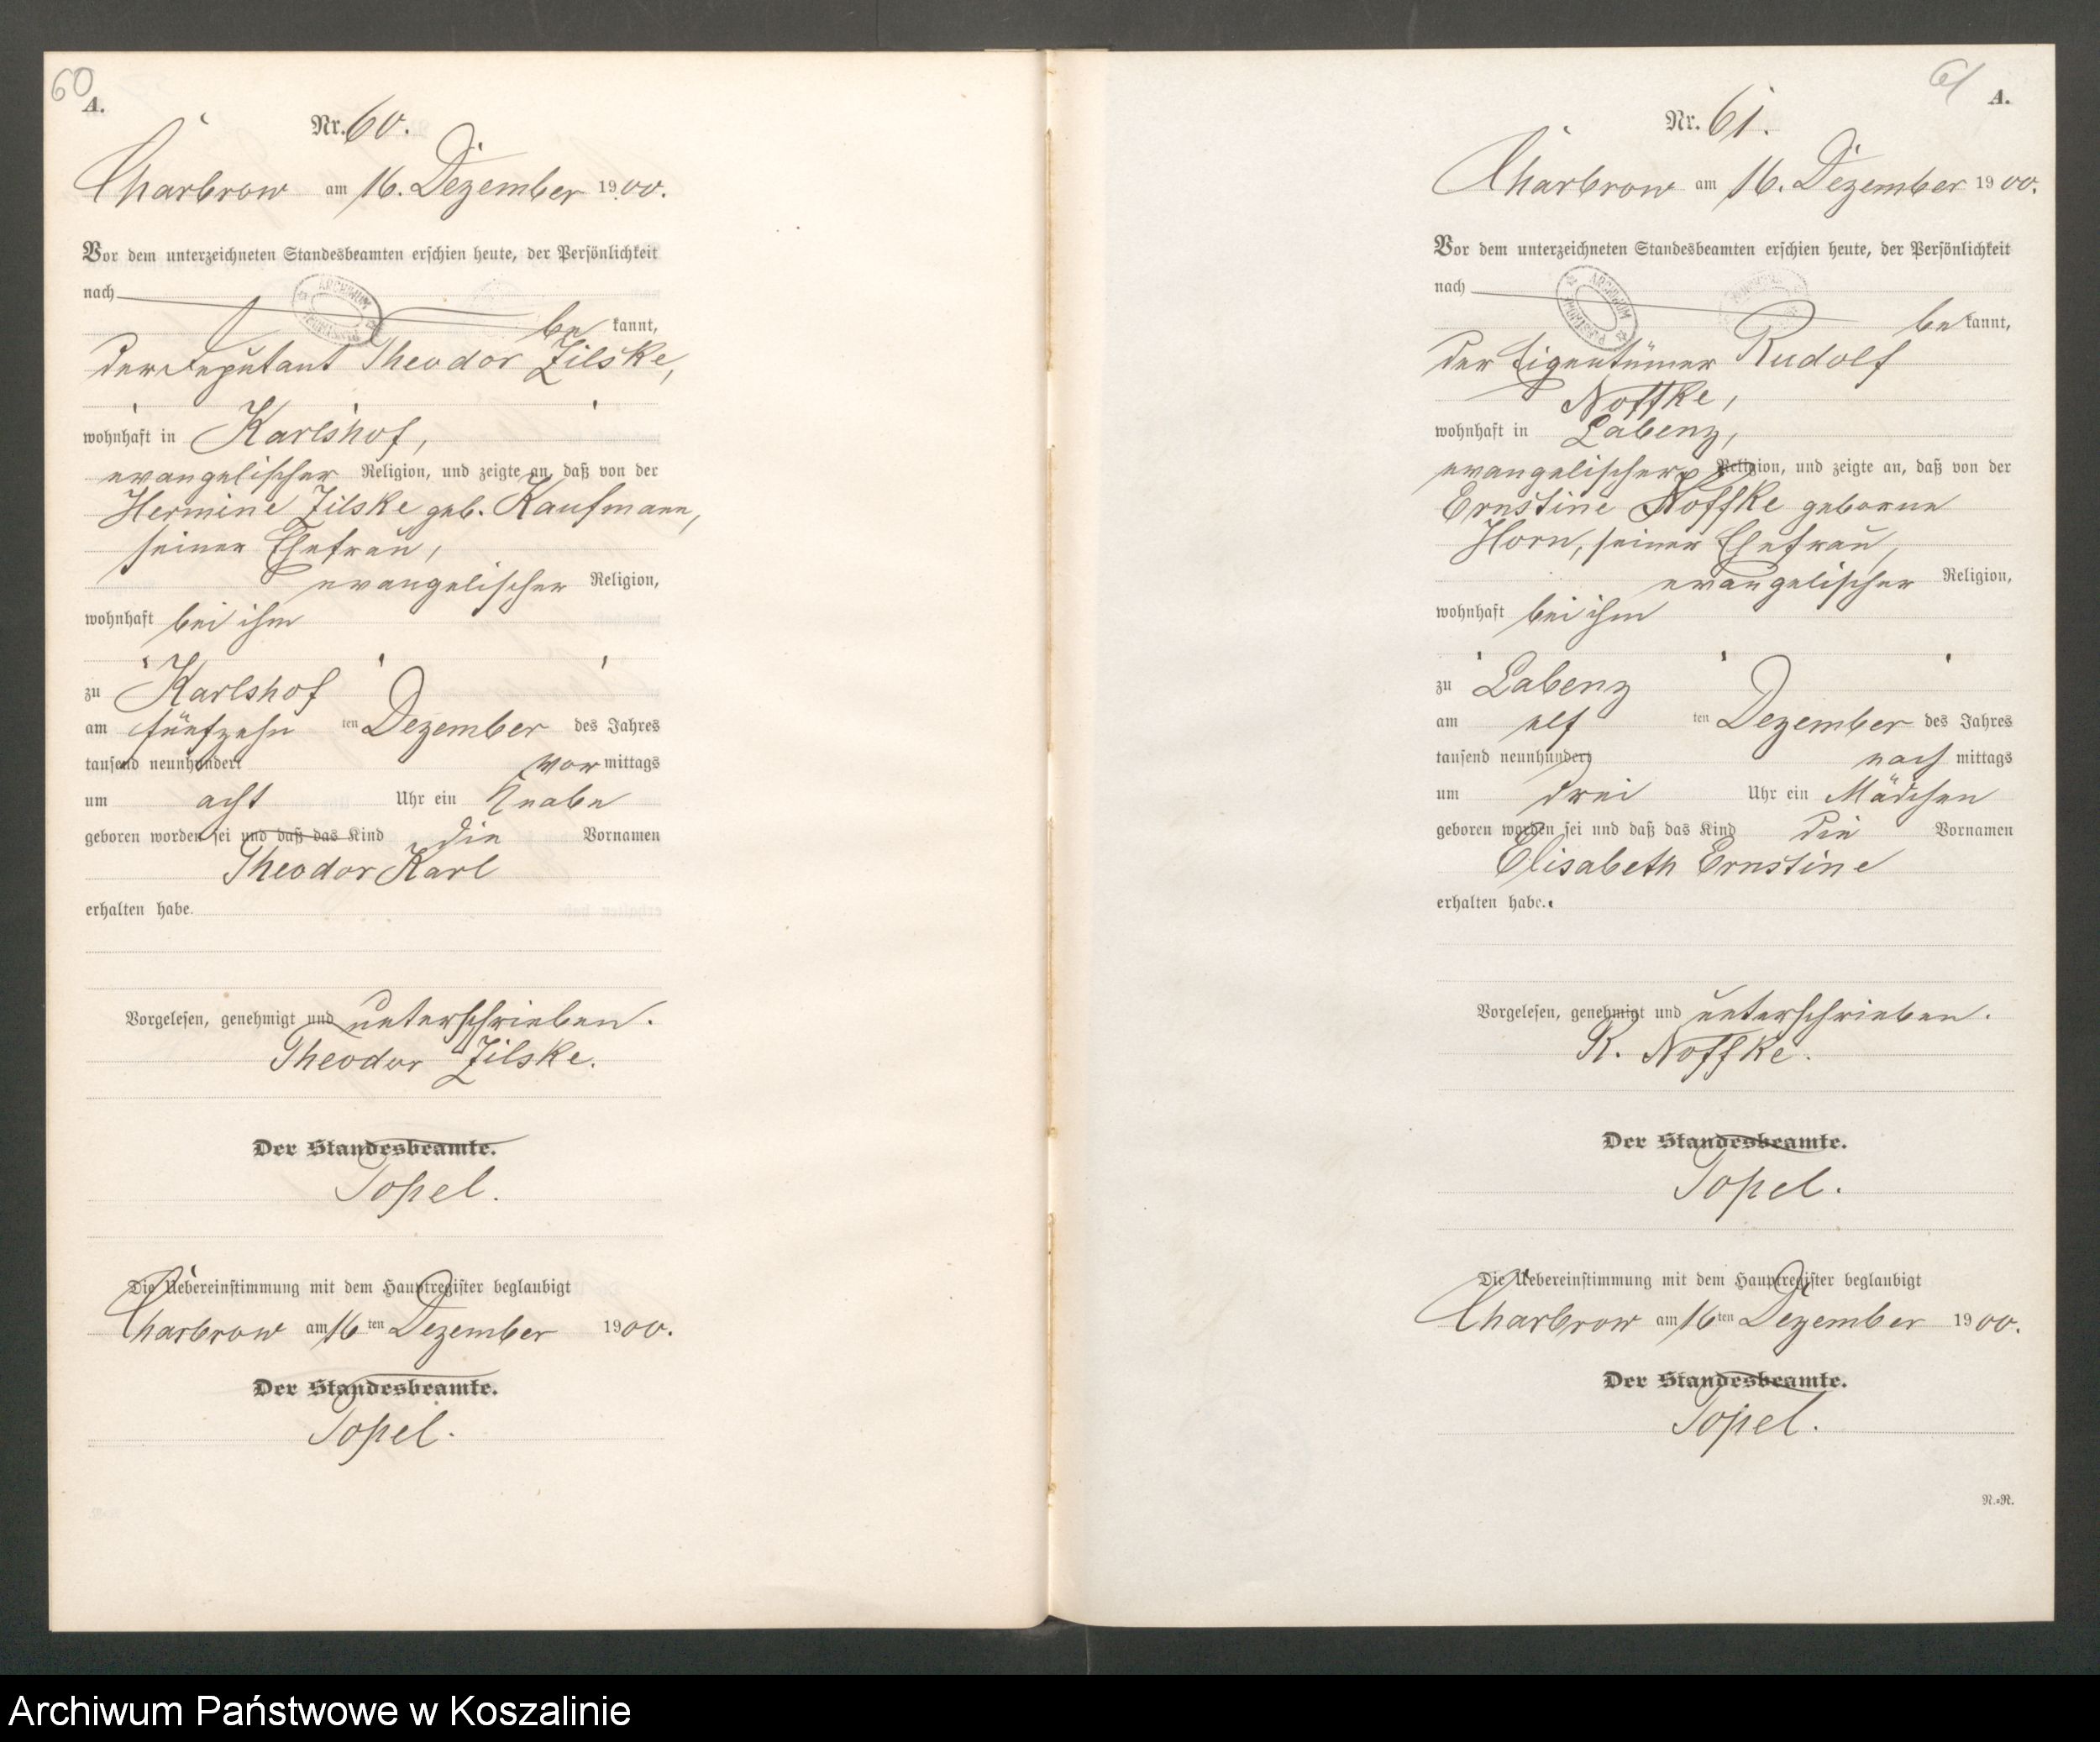 60
A.
Nr. 60.
Charbrow am 16. Dezember 1900.
Vor dem unterzeichneten Standesbeamten erschien heute, der Persönlichkeit
nach
be kannt,
der Deputant Theodor Zilske,
wohnhaft in Karlshof,
evangelischer Religion, und zeigte an, daß von der
Hermine Zilske geb. Kaufmann,
seiner Ehefrau,
evangelischer Religion,
wohnhaft bei ihm
zu Karlshof
am fünfzehn ten Dezember des Jahres
tausend neunhundert vor mittags
um acht Uhr ein Knabe
geboren worden sei und daß das Kind die Vornamen
Theodor Karl
erhalten habe.
Vorgelesen, genehmigt und unterschrieben.
Theodor Zilske.
Der Standesbeamte.
Topel.
Die Uebereinstimmung mit dem Hauptregister beglaubigt
Charbrow am 16 ten Dezember 1900.
Der Standesbeamte.
Topel.
61
A.
Nr. 61.
Charbrow am 16. Dezember 1900.
Vor dem unterzeichneten Standesbeamten erschien heute, der Persönlichkeit
nach
be kannt,
der Eigentümer Rudolf
Noffke,
wohnhaft in Labenz,
evangelischer Religion, und zeigte an, daß von der
Ernstine Noffke geborne
Horn, seiner Ehefrau,
evangelischer Religion,
wohnhaft bei ihm
zu Labenz
am elf ten Dezember des Jahres
tausend neunhundert nach mittags
um drei Uhr ein Mädchen
geboren worden sei und daß das Kind die Vornamen
Elisabeth Ernstine
erhalten habe.
Vorgelesen, genehmigt und unterschrieben.
R. Noffke.
Der Standesbeamte.
Topel.
Die Uebereinstimmung mit dem Hauptregister beglaubigt
Charbrow am 16 ten Dezember 1900.
Der Standesbeamte.
Topel.
N.-R.
Archiwum Państwowe w Koszalinie